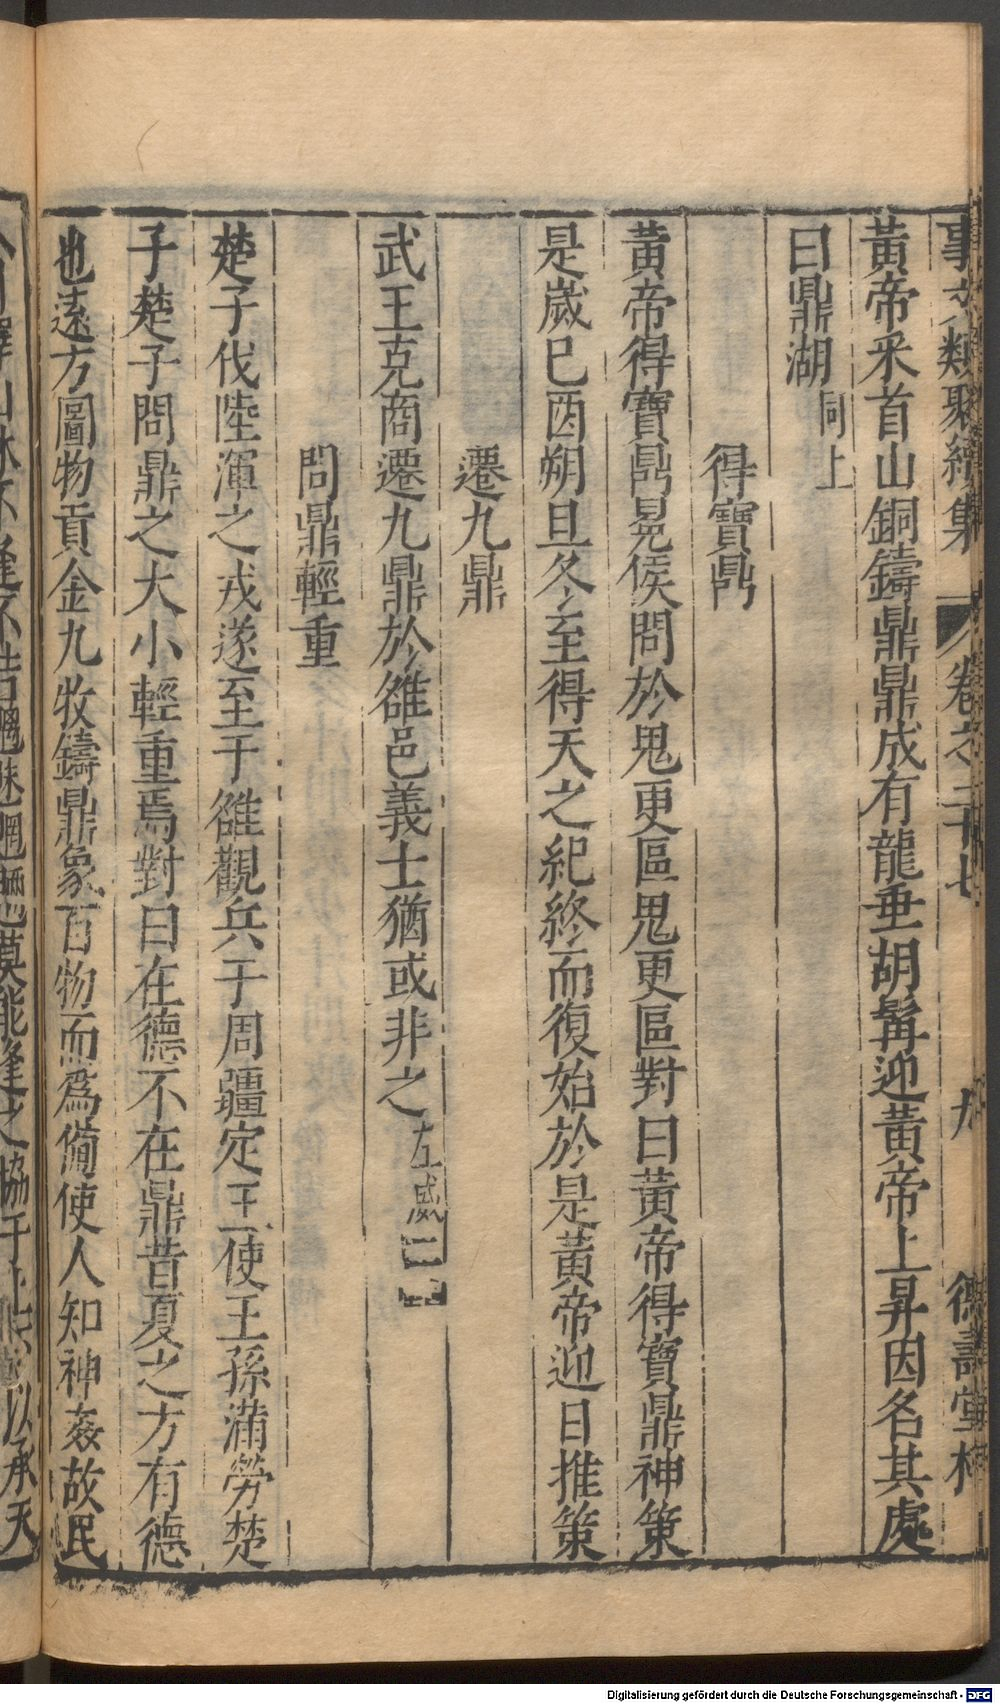 事文類聚續集 卷之二十七 九 德壽堂梓
黃帝采首山銅鑄鼎鼎成有龍垂胡髯迎黃帝上昇因名其處
曰鼎湖同上
得寶鼎
黃帝得寶鼎冕侯問於鬼更區鬼更區對曰黃帝得寶鼎神策
是歲巳酉朔旦冬至得天之紀終而復始於是黃帝迎日推策
遷九鼎
武王克商遷九鼎於雒邑義士猶或非之左威二
問鼎輕重
楚子伐陸渾之戎遂至于雒觀兵于周疆定王使王孫滿勞楚
子楚子問鼎之大小輕重焉對曰在德不在鼎昔夏之方有德
也遠方圖物貢金九牧鑄鼎象百物而爲備使人知神姦故民
山林不逢不若魑魅魍魎莫能逢之協于上以承天
Digitalisierung gefördert durch die Deutsche Forschungsgemeinschaft - DFG